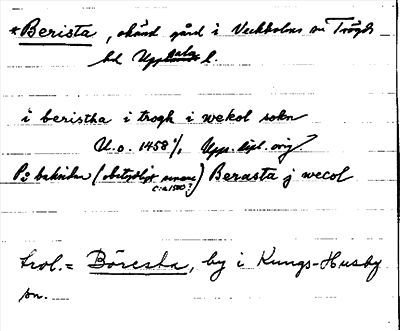 *Berista, okänd gård i Veckholms sn Trögds
hd Uppsala l.
i beristha i trogh i wekol sokn
U.o. 1458 1/1 Upp. dipl. orig
På baksidan (obetydligt senare) Berasta j wecol
c:a 1500?
trol. = Böresta, by i Kungs-Husby
sn.